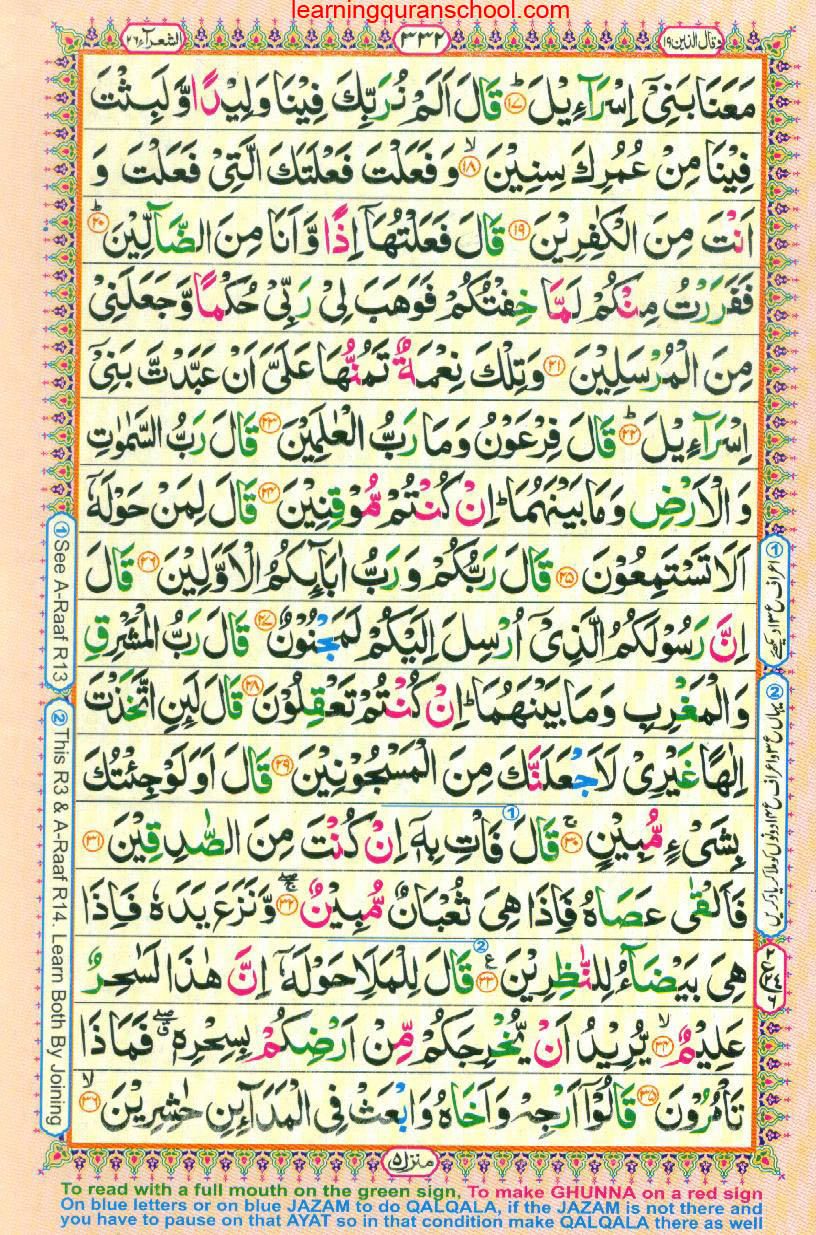 learningquranschool.com
الشعرآء ٢٦ ٣٣٢ وقال الذين ١٩
مَعَنَا بَنِىْٓ اِسْرَآءِيْلَ ؕ﴿۱۷﴾ قَالَ اَلَمْ نُرَبِّكَ فِيْنَا وَلِيْدًا وَّلَبِثْتَ
فِيْنَا مِنْ عُمُرِكَ سِنِيْنَ ۙ﴿۱۸﴾ وَفَعَلْتَ فَعْلَتَكَ الَّتِىْ فَعَلْتَ وَ
اَنْتَ مِنَ الْكٰفِرِيْنَ ﴿۱۹﴾ قَالَ فَعَلْتُهَاۤ اِذًا وَّاَنَا مِنَ الضَّآلِّيْنَ ؕ﴿۲۰﴾
فَفَرَرْتُ مِنْكُمْ لَمَّا خِفْتُكُمْ فَوَهَبَ لِىْ رَبِّىْ حُكْمًا وَّجَعَلَنِىْ
مِنَ الْمُرْسَلِيْنَ ﴿۲۱﴾ وَتِلْكَ نِعْمَةٌ تَمُنُّهَا عَلَىَّ اَنْ عَبَّدْتَّ بَنِىْٓ
اِسْرَآءِيْلَ ؕ﴿۲۲﴾ قَالَ فِرْعَوْنُ وَمَا رَبُّ الْعٰلَمِيْنَ ﴿۲۳﴾ قَالَ رَبُّ السَّمٰوٰتِ
وَالْاَرْضِ وَمَا بَيْنَهُمَا ؕ اِنْ كُنْتُمْ مُّوْقِنِيْنَ ﴿۲۴﴾ قَالَ لِمَنْ حَوْلَهٗۤ
اَلَا تَسْتَمِعُوْنَ ﴿۲۵﴾ قَالَ رَبُّكُمْ وَرَبُّ اٰبَآئِكُمُ الْاَوَّلِيْنَ ﴿۲۶﴾ قَالَ
اِنَّ رَسُوْلَكُمُ الَّذِىْۤ اُرْسِلَ اِلَيْكُمْ لَمَجْنُوْنٌ ﴿۲۷﴾ قَالَ رَبُّ الْمَشْرِقِ
وَالْمَغْرِبِ وَمَا بَيْنَهُمَا ؕ اِنْ كُنْتُمْ تَعْقِلُوْنَ ﴿۲۸﴾ قَالَ لَئِنِ اتَّخَذْتَ
اِلٰهًا غَيْرِىْ لَاَجْعَلَنَّكَ مِنَ الْمَسْجُوْنِيْنَ ﴿۲۹﴾ قَالَ اَوَلَوْ جِئْتُكَ
بِشَىْءٍ مُّبِيْنٍ ۚ﴿۳۰﴾ قَالَ فَاْتِ بِهٖۤ اِنْ كُنْتَ مِنَ الصّٰدِقِيْنَ ﴿۳۱﴾
فَاَلْقٰى عَصَاهُ فَاِذَا هِىَ ثُعْبَانٌ مُّبِيْنٌ ۚۖ﴿۳۲﴾ وَّنَزَعَ يَدَهٗ فَاِذَا
هِىَ بَيْضَآءُ لِلنّٰظِرِيْنَ ﴿۳۳﴾ قَالَ لِلْمَلَاِ حَوْلَهٗۤ اِنَّ هٰذَا لَسٰحِرٌ
عَلِيْمٌ ۙ﴿۳۴﴾ يُّرِيْدُ اَنْ يُّخْرِجَكُمْ مِّنْ اَرْضِكُمْ بِسِحْرِهٖ ۖۗ فَمَاذَا
تَاْمُرُوْنَ ﴿۳۵﴾ قَالُوْۤا اَرْجِهْ وَاَخَاهُ وَابْعَثْ فِى الْمَدَآئِنِ حٰشِرِيْنَ ۙ﴿۳۶﴾
منزل ۵
① See A-Raaf R13
② This R3 & A-Raaf R14. Learn Both By Joining
To read with a full mouth on the green sign, To make GHUNNA on a red sign
On blue letters or on blue JAZAM to do QALQALA, if the JAZAM is not there and
you have to pause on that AYAT so in that condition make QALQALA there as well